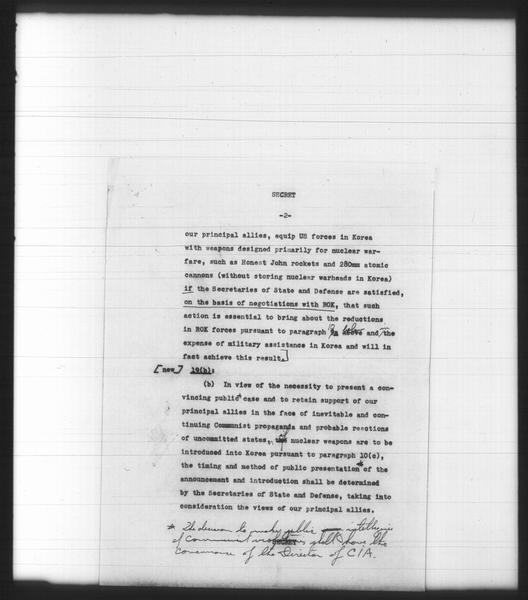 SECRET
-2-
our principal allies, equip US forces in Korea
with weapons designed primarily for nuclear war-
fare, such as Honest John rockets and 280mm atomic
cannons (without storing nuclear warheads in Korea)
if the Secretaries of State and Defense are satisfied,
on the basis of negotiations with ROK, that such
action is essential to bring about the reductions
in ROK forces pursuant to paragraph above and the
expense of military assistance in Korea and will in
fact achieve this result.]
[new] 19(b):
(b) In view of the necessity to present a con-
vincing public* case and to retain support of our
principal allies in the face of inevitable and con-
tinuing Communist propaganda and probable reactions
of uncommitted states, if nuclear weapons are to be
introduced into Korea pursuant to paragraph 10(c),
the timing and method of public presentation* of the
announcement and introduction shall be determined
by the Secretaries of State and Defense, taking into
consideration the views of our principal allies.
* The decision to make public intelligence
of Communist violations shall have the
SECRET
concurrence of the Director of CIA.